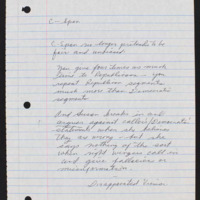 C-Span
C Span no longer pretends to be
fair and unbiased.
You give four times as much
time to Republicans - you
repeat Republican segments
much more than Democratic
segments
And Susan breaks in and
argues against callers/Democrats'
statements when she believes
they are wrong - but she
says nothing of the sort
when right wingers call in
and give fallacious or
misinformation.
Disappointed Viewer